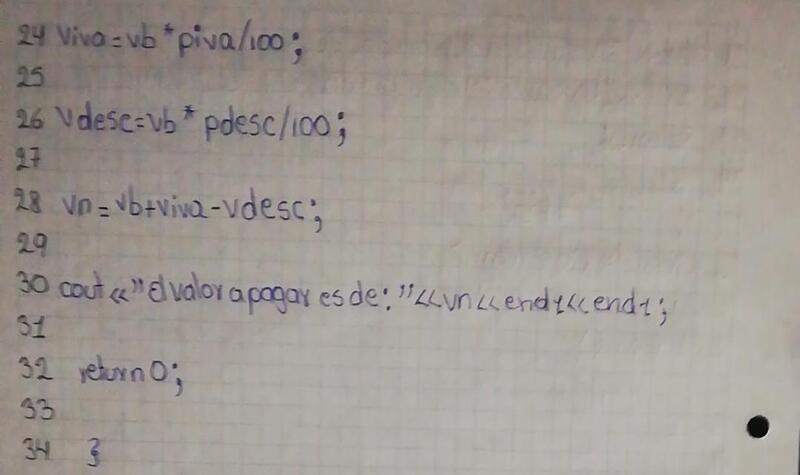 24 viva=vb*piva/100;
25
26 vdesc=vb*pdesc/100;
27
28 vn=vb+viva-vdesc;
29
30 cout<<"El valor a pagar es de:"<<vn<<endl<<endl;
31
32 return 0;
33
34 }